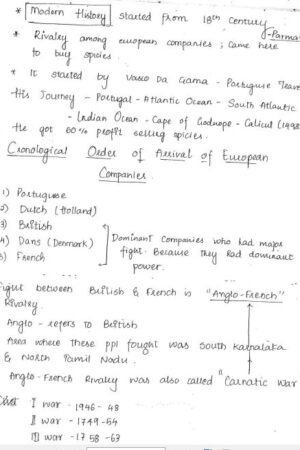 * Modern History started from 18th Century
* Rivalry among european companies; came here
to buy spicies.
* It started by Vasco Da Gama - Portugise
His Journey - Portugal - Atlantic Ocean - South Atlantic
- Indian Ocean - Cape of Godhope - Calicut
He got 60% profit selling spicies.
Cronological Order of Arrival of European
Companies.
1) Portuguese
2) Dutch (Holland)
3) British
4) Dans (Denmark)
5) French
Dominant Companies who had major
fight. Because they had dominant
power.
Fight between British & French is "Anglo-French"
Rivalry.
Anglo - refers to British
Area where these ppl fought was South Karnataka
& North Tamil Nadu.
Anglo-French Rivalry was also called "Carnatic War
I war - 1946-48
II war - 1749-54
III war - 1758-63